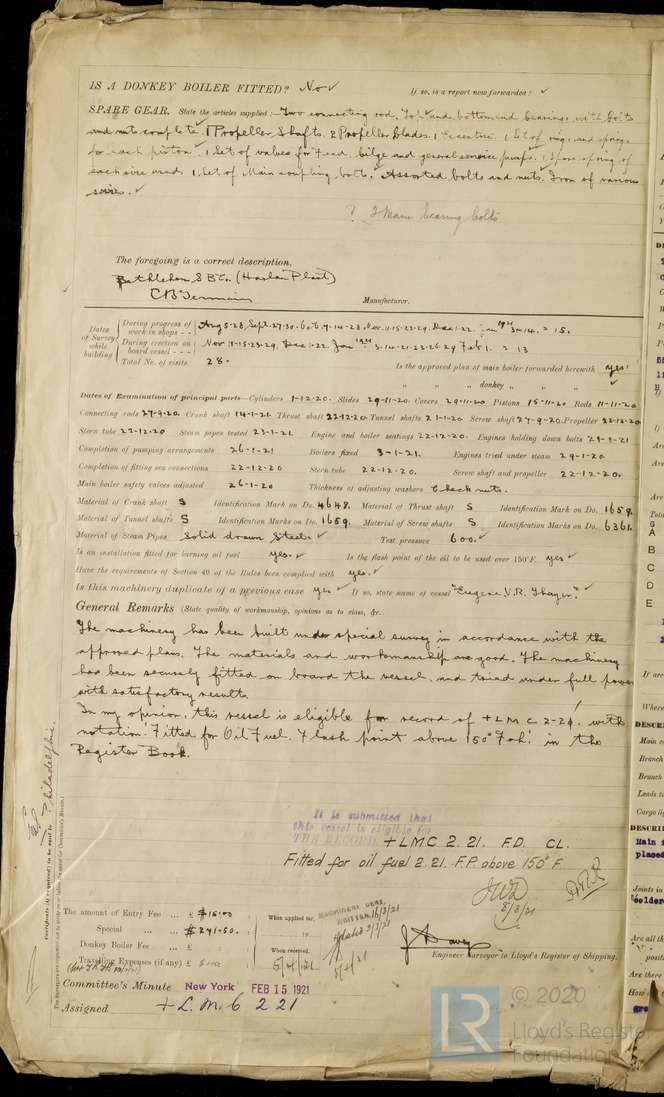 IS A DONKEY BOILER FITTED? No ✓ If so, is a report now forwarded? ✓
SPARE GEAR. State the articles supplied:— Two connecting rod, Top and bottom end bearings, with bolts
and nuts complete. 1 Propeller Shafts. 2 Propeller Blades. 1 Eccentric. 1 Set of rings and springs
for each piston. 1 Set of valves for Feed, bilge and general service pumps. 1 Spare spring of
each size used. 1 Set of Main coupling bolts. Assorted bolts and nuts. Iron of various
sizes. ✓
? 2 Main bearing bolts
The foregoing is a correct description,
Bethlehem S B Co. (Harlan Plant)
Manufacturer.
Dates of Survey while building
During progress of work in shops - - Aug 5-28 Sept. 27-30. Oct. 7-14-28 Nov. 11-15-23-29. Dec 1-22. Jan 1921 3-14. = 15.
During erection on board vessel - - - Nov. 11-15-23-29. Dec 1-22. Jan 1921 3-14-21-23-26-29 Feb 1. = 13
Total No. of visits 28.
Is the approved plan of main boiler forwarded herewith yes
" " " donkey " " "
Dates of Examination of principal parts—Cylinders 1-12-20. Slides 29-11-20. Covers 29-11-20 Pistons 15-11-20 Rods 11-11-20
Connecting rods 27-9-20. Crank shaft 14-1-21. Thrust shaft 22-12-20. Tunnel shafts 21-1-20 Screw shaft 27-9-20. Propeller 22-12-20
Stern tube 22-12-20 Steam pipes tested 23-1-21. Engine and boiler seatings 22-12-20. Engines holding down bolts 21-1-21
Completion of pumping arrangements 26-1-21 Boilers fixed 3-1-21. Engines tried under steam 29-1-20.
Completion of fitting sea connections 22-12-20 Stern tube 22-12-20. Screw shaft and propeller 22-12-20.
Main boiler safety valves adjusted 26-1-20 Thickness of adjusting washers Check nuts.
Material of Crank shaft S Identification Mark on Do. 4648. Material of Thrust shaft S Identification Mark on Do. 1659.
Material of Tunnel shafts S Identification Marks on Do. 1659. Material of Screw shafts S Identification Marks on Do. 6361.
Material of Steam Pipes Solid drawn Steel. ✓ Test pressure 600. ✓
Is an installation fitted for burning oil fuel yes. ✓ Is the flash point of the oil to be used over 150°F. yes ✓
Have the requirements of Section 49 of the Rules been complied with yes. ✓
Is this machinery duplicate of a previous case yes ✓ If so, state name of vessel "Eugene V.R. Thayer." ✓
General Remarks (State quality of workmanship, opinions as to class, &c.
The machinery has been built under special survey in accordance with the
approved plans. The materials and workmanship are good. The machinery
has been securely fitted on board the vessel, and tried under full power
with satisfactory results.
In my opinion, this vessel is eligible for record of +LMC 2-21. with
notation: Fitted for Oil Fuel. Flash point above 150° Fah. in the
Register Book.
It is submitted that
this vessel is eligible for
THE RECORD. +LMC 2.21. F.D. CL.
Fitted for oil fuel 2.21. F.P. above 150° F.
JWD
8/3/21
Certificate (if required) to be sent to Philadelphia.
The amount of Entry Fee ... £ $15.00 : When applied for,
Special ... £ $241.50. : 19
Donkey Boiler Fee ... £ : : When received,
Travelling Expenses (if any) £ : 5/4/21
5/4/21
Engineer Surveyor to Lloyd's Register of Shipping.
Committee's Minute New York FEB 15 1921
Assigned + L.M.C 2 21
LR © 2020
Lloyd's Register
Foundation